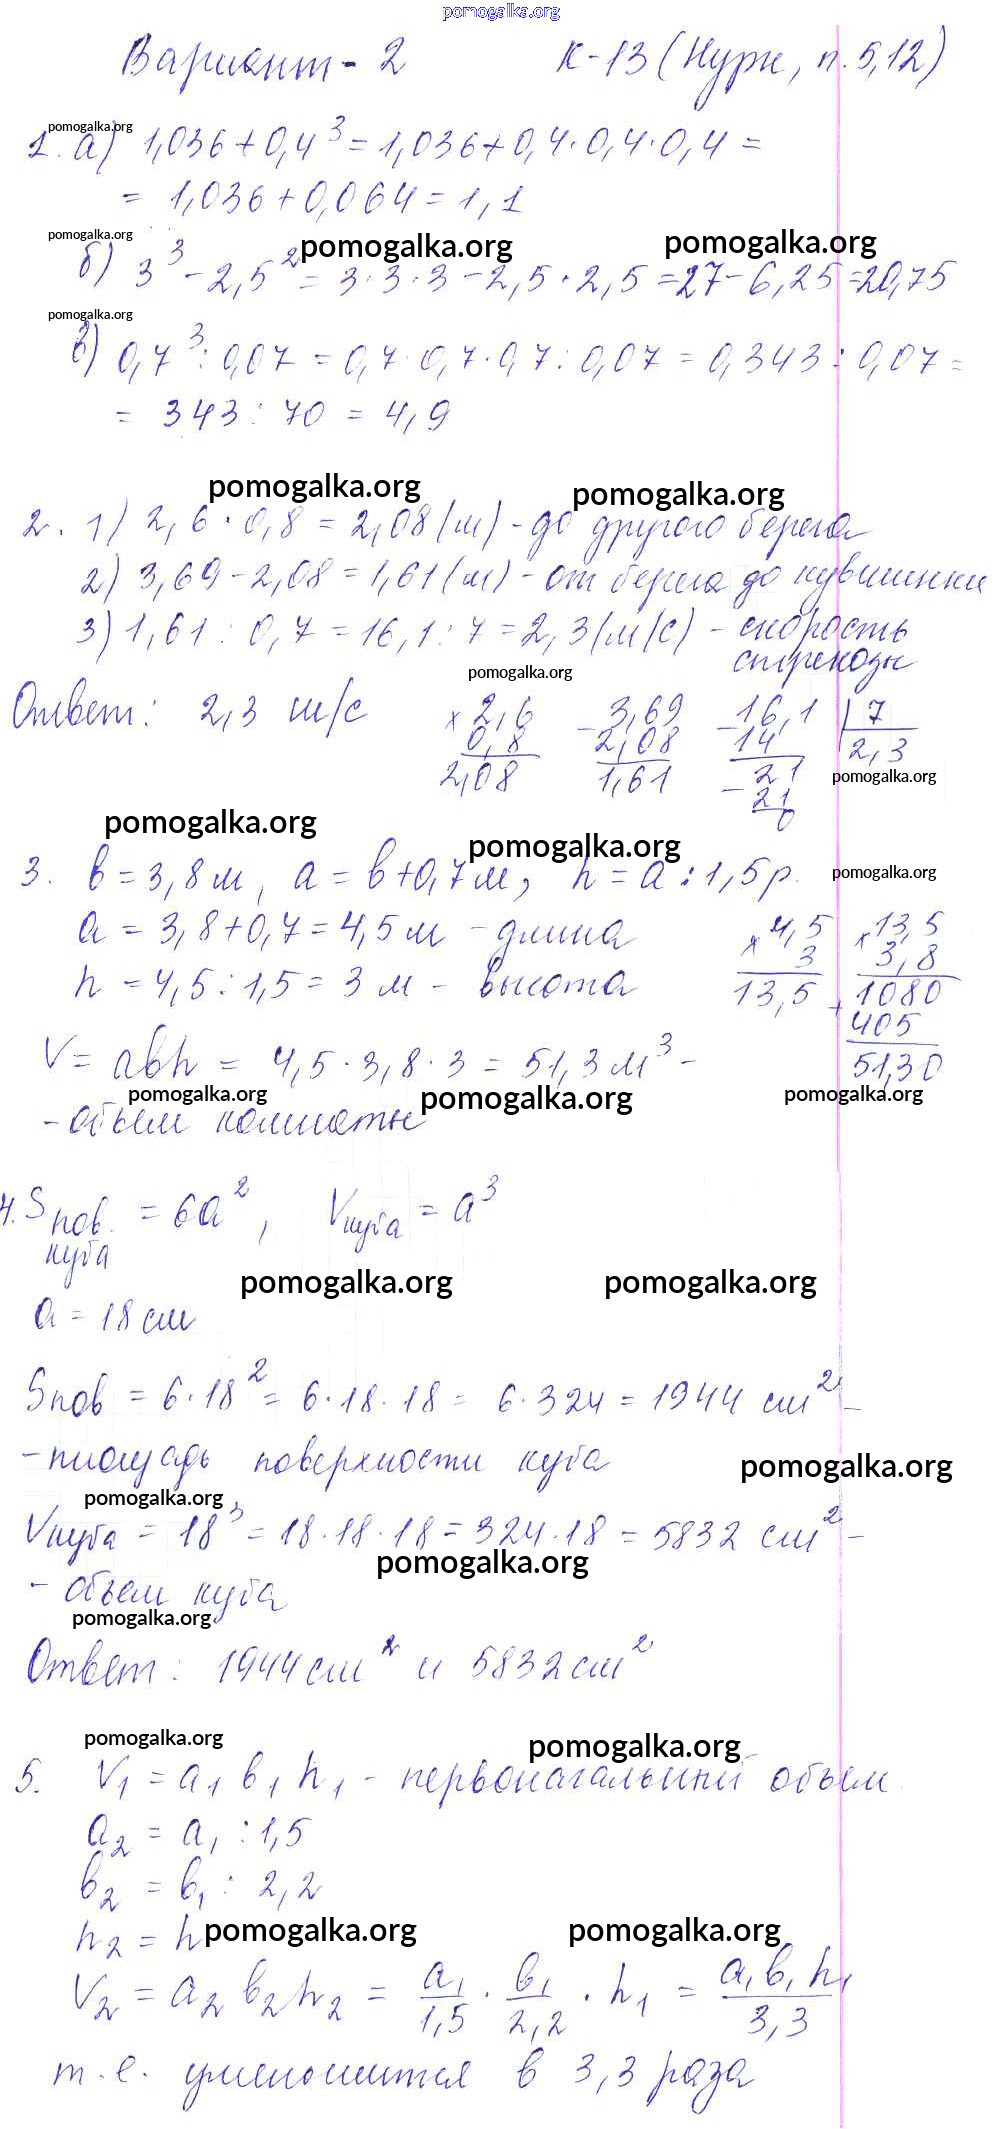 pomogalka.org
Вариант - 2 К-13 (Нурк, п. 5,12)
pomogalka.org
1. а) 1,036 + 0,4³ = 1,036 + 0,4 · 0,4 · 0,4 =
= 1,036 + 0,064 = 1,1
pomogalka.org pomogalka.org pomogalka.org
б) 3³ - 2,5² = 3 · 3 · 3 - 2,5 · 2,5 = 27 - 6,25 = 20,75
pomogalka.org
в) 0,7³ : 0,07 = 0,7 · 0,7 · 0,7 : 0,07 = 0,343 : 0,07 =
= 343 : 70 = 4,9
pomogalka.org pomogalka.org
2. 1) 2,6 · 0,8 = 2,08 (м) - до другого берега
2) 3,69 - 2,08 = 1,61 (м) - от берега до кувшинки
3) 1,61 : 0,7 = 16,1 : 7 = 2,3 (м/с) - скорость
стрекозы
pomogalka.org
Ответ: 2,3 м/с
× 2,6 - 3,69 - 16,1 | 7
0,8 2,08 14 2,3
2,08 1,61 21
pomogalka.org
- 21
0
pomogalka.org pomogalka.org
3. в = 3,8 м, а = в + 0,7 м, h = а : 1,5 р.
pomogalka.org
а = 3,8 + 0,7 = 4,5 м - длина
× 4,5 × 13,5
3 3,8
h = 4,5 : 1,5 = 3 м - высота
13,5 + 1080
405
51,30
V = авh = 4,5 · 3,8 · 3 = 51,3 м³ -
pomogalka.org pomogalka.org pomogalka.org
- объем комнаты
4. Sпов. куба = 6а², Vкуба = а³
pomogalka.org pomogalka.org
а = 18 см
Sпов = 6 · 18² = 6 · 18 · 18 = 6 · 324 = 1944 см² -
- площадь поверхности куба
pomogalka.org
pomogalka.org
Vкуба = 18³ = 18 · 18 · 18 = 324 · 18 = 5832 см² -
pomogalka.org
- объем куба
pomogalka.org
Ответ: 1944 см² и 5832 см²
pomogalka.org pomogalka.org
5. V₁ = а₁ в₁ h₁ - первоначальный объем
а₂ = а₁ : 1,5
в₂ = в₁ : 2,2
h₂ = h
pomogalka.org pomogalka.org
V₂ = а₂ в₂ h₂ = а₁/1,5 · в₁/2,2 · h₁ = а₁ в₁ h₁/3,3
т.е. уменьшится в 3,3 раза